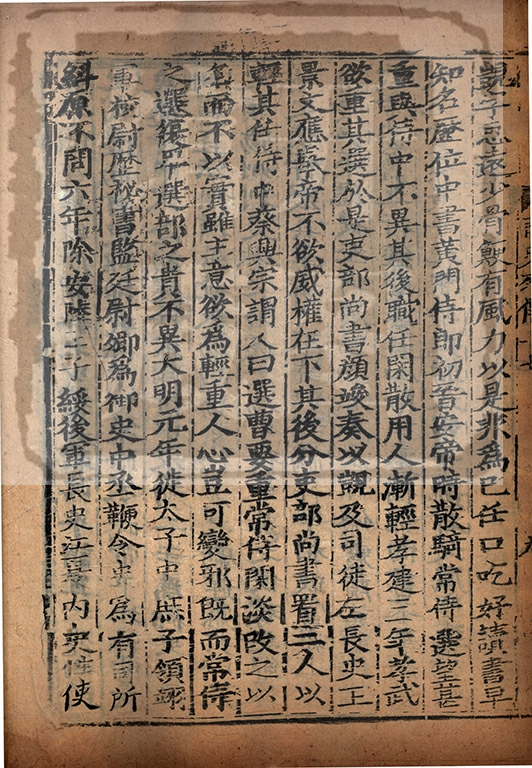 覬子思遠少骨鯁有風力以是非爲己任口吃好讀書早
知名歷位中書黃門侍郎初晉安帝時散騎常侍選望甚
重與侍中不異其後職任閑散用人漸輕孝建三年孝武
欲重其選於是吏部尚書顏峻奏以覬及司徒左長史王
景文應舉帝不欲威權在下其後分吏部尚書置二人以
輕其任侍中蔡興宗謂人曰選曹要重常侍閑淡改之以
名而不以實雖主意欲爲輕重人心豈可變邪旣而常侍
之選復卑選部之貴不異大明元年徙太子中庶子領翊
軍校尉歷祕書監廷尉卿爲御史中丞鞭令史爲有司所
糾原不問六年除安陸王子綏後軍長史江夏內史性使